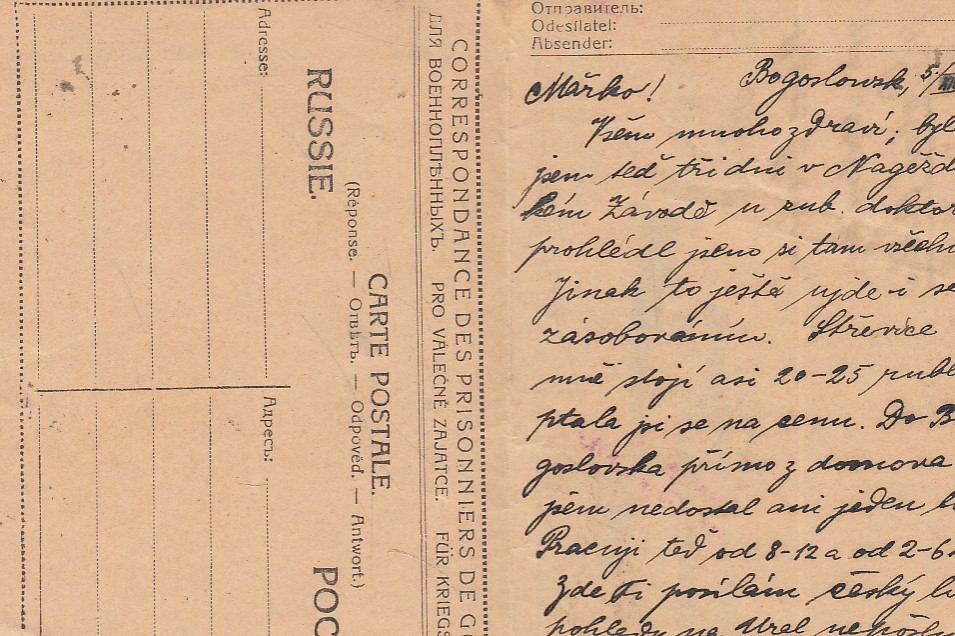 Adresse:
RUSSIE.
(Réponse. — Отвѣтъ. — Odpověd. — Antwort.)
CARTE POSTALE.
Адресъ:
ДЛЯ ВОЕННОПЛѢННЫХЪ. PRO VALEČNÉ ZAJATCE. FÜR KRIEGS
CORRESPONDANCE DES PRISONNIERS DE G
Отправитель:
Odesílatel:
Absender:
Bogoslovsk, 5/XII
Mařko!
Všem mnoho zdraví; byl
jsem teď tři dni v Nagěžd
kém Závodě u rub. doktor
prohlédl jsem si tam všech
Jinak to ještě ujde-i se
zásobováním. Střevíce
mně stojí asi 20-25 rubl
ptala jsi se na cenu. Do B
goslovska přímo z domova
jsem nedostal ani jeden l
Pracuji teď od 8-12 a od 2-6
Zde Ti posílám český l
pohledu na Ural